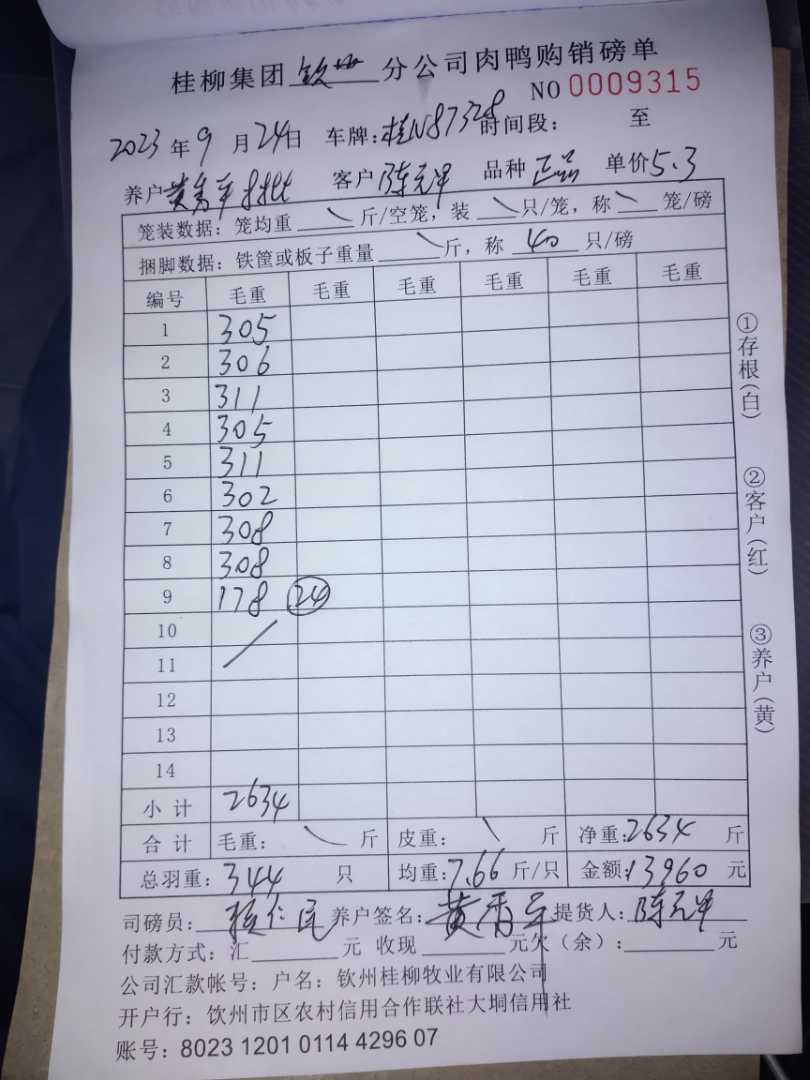 桂柳集团 钦州 分公司肉鸭购销磅单
NO 0009315
2023 年 9 月 24日 车牌:桂N87328 时间段: 至
养户 客户 陈元甲 品种 正品 单价5.3
笼装数据: 笼均重 \ 斤/空笼, 装 \ 只/笼, 称 \ 笼/磅
捆脚数据: 铁筐或板子重量 \ 斤, 称 40 只/磅
编号 毛重 毛重 毛重 毛重 毛重 毛重
1 305
2 306
3 311
4 305
5 311
6 302
7 308
8 308
9 178 24
10
11
12
13
14
小计 2634
合计 毛重: \ 斤 皮重: \ 斤 净重:2634 斤
总羽重: 344 只 均重:7.66 斤/只 金额:13960 元
司磅员: 养户签名: 提货人: 陈元甲
付款方式: 汇 元 收现 元欠(余): 元
公司汇款帐号: 户名: 钦州桂柳牧业有限公司
开户行: 钦州市区农村信用合作联社大垌信用社
账号: 8023 1201 0114 4296 07
①存根(白)
②客户(红)
③养户(黄)